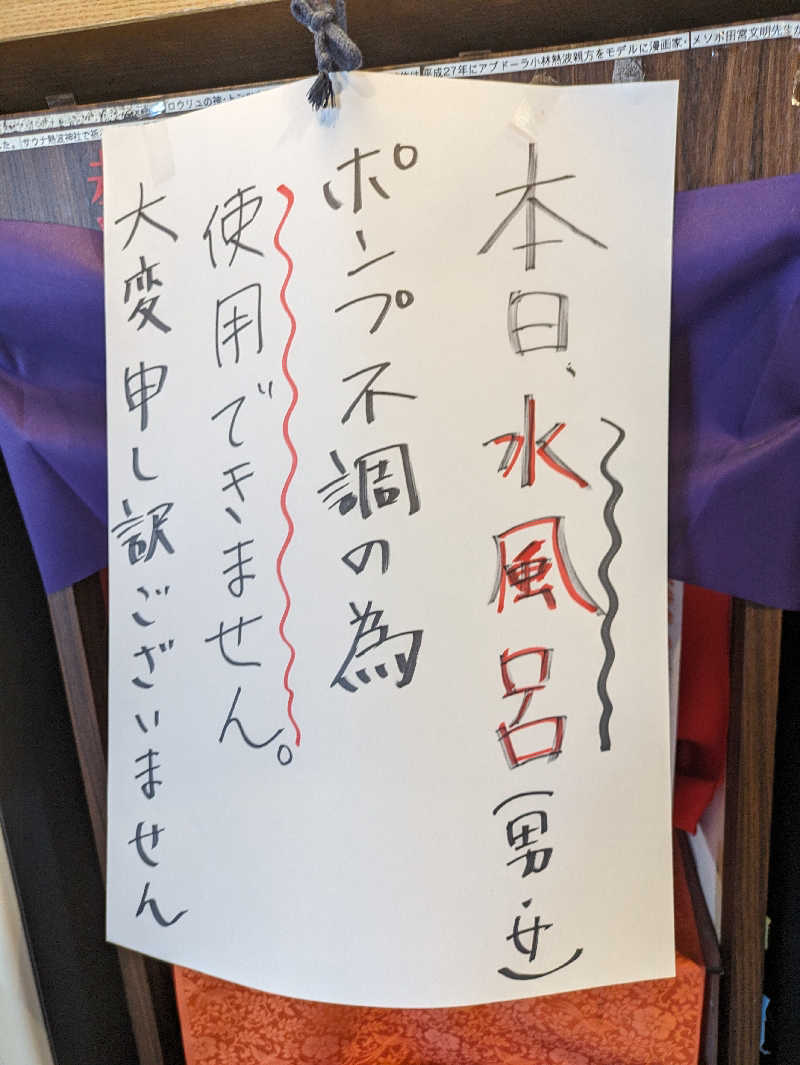 平成27年にアブドーラ小林熱波親方をモデルに漫画家・メソポ田宮文明先生が
ロウリュの神・トン
た。サウナ熱波神社で祈
本日、水風呂(男・女)
ポンプ不調の為
使用できません。
大変申し訳ございません